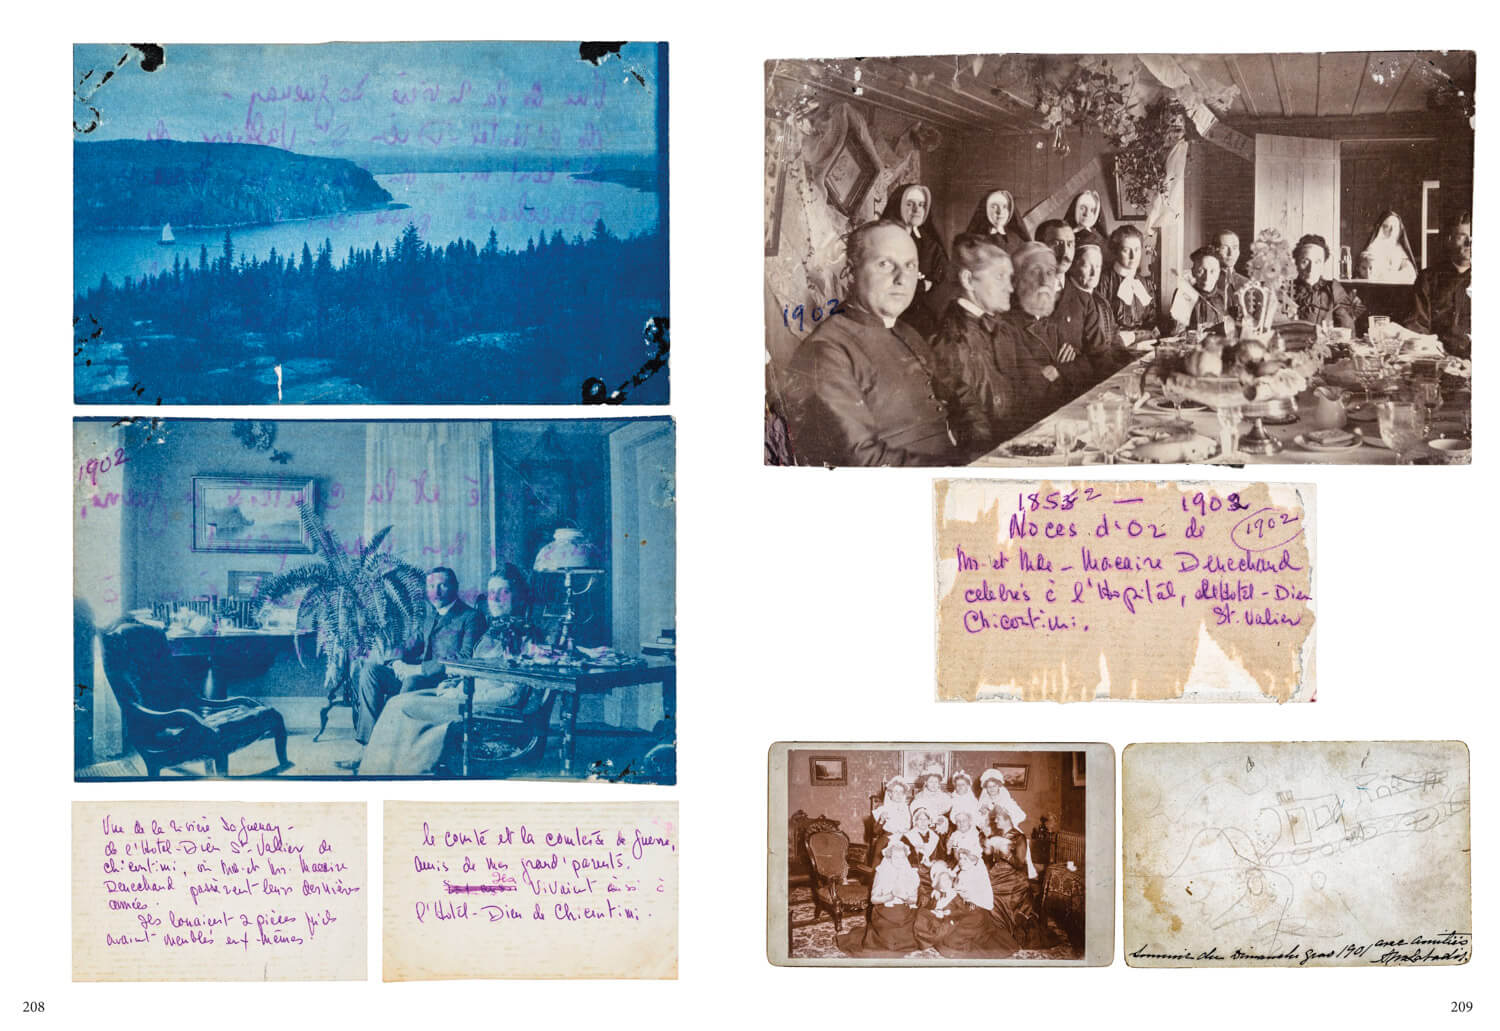 1902
Vue de la rivière Saguenay -
de l'Hôtel-Dieu St-Vallier de
Chicoutimi, où Mr. et Mrs. Macaire
Denechaud passèrent leurs dernières
années.
Ils louaient 2 pièces qu'ils
avaient meublés eux-mêmes.
le comte et la comtesse de Guerre,
amis de mes grand'parents.
Ils vivaient aussi à
l'Hôtel-Dieu de Chicoutimi.
208
1902
1852 — 1902
Noces d'Or de
1902
Mr. et Mde - Macaire Denechaud
célébrés à l'Hôpital, de l'Hôtel-Dieu
St. Valier
Chicoutimi.
avec amitiés
Souvenir du Dimanche gras 1901
209